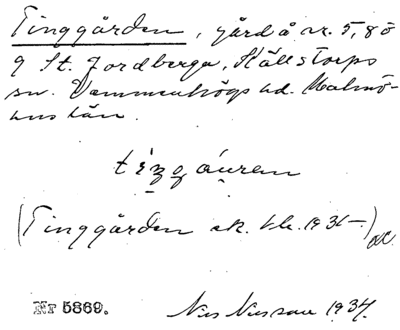 Tinggården, gård å nr. 5, 8 o
9 St. Jordberga, Källstorps
sn. Vemmenhögs hd. Malmö-
hus län.
(Tinggården ek. kb. 1931—)
Nr 5869.
Nils Nilsson 1937.